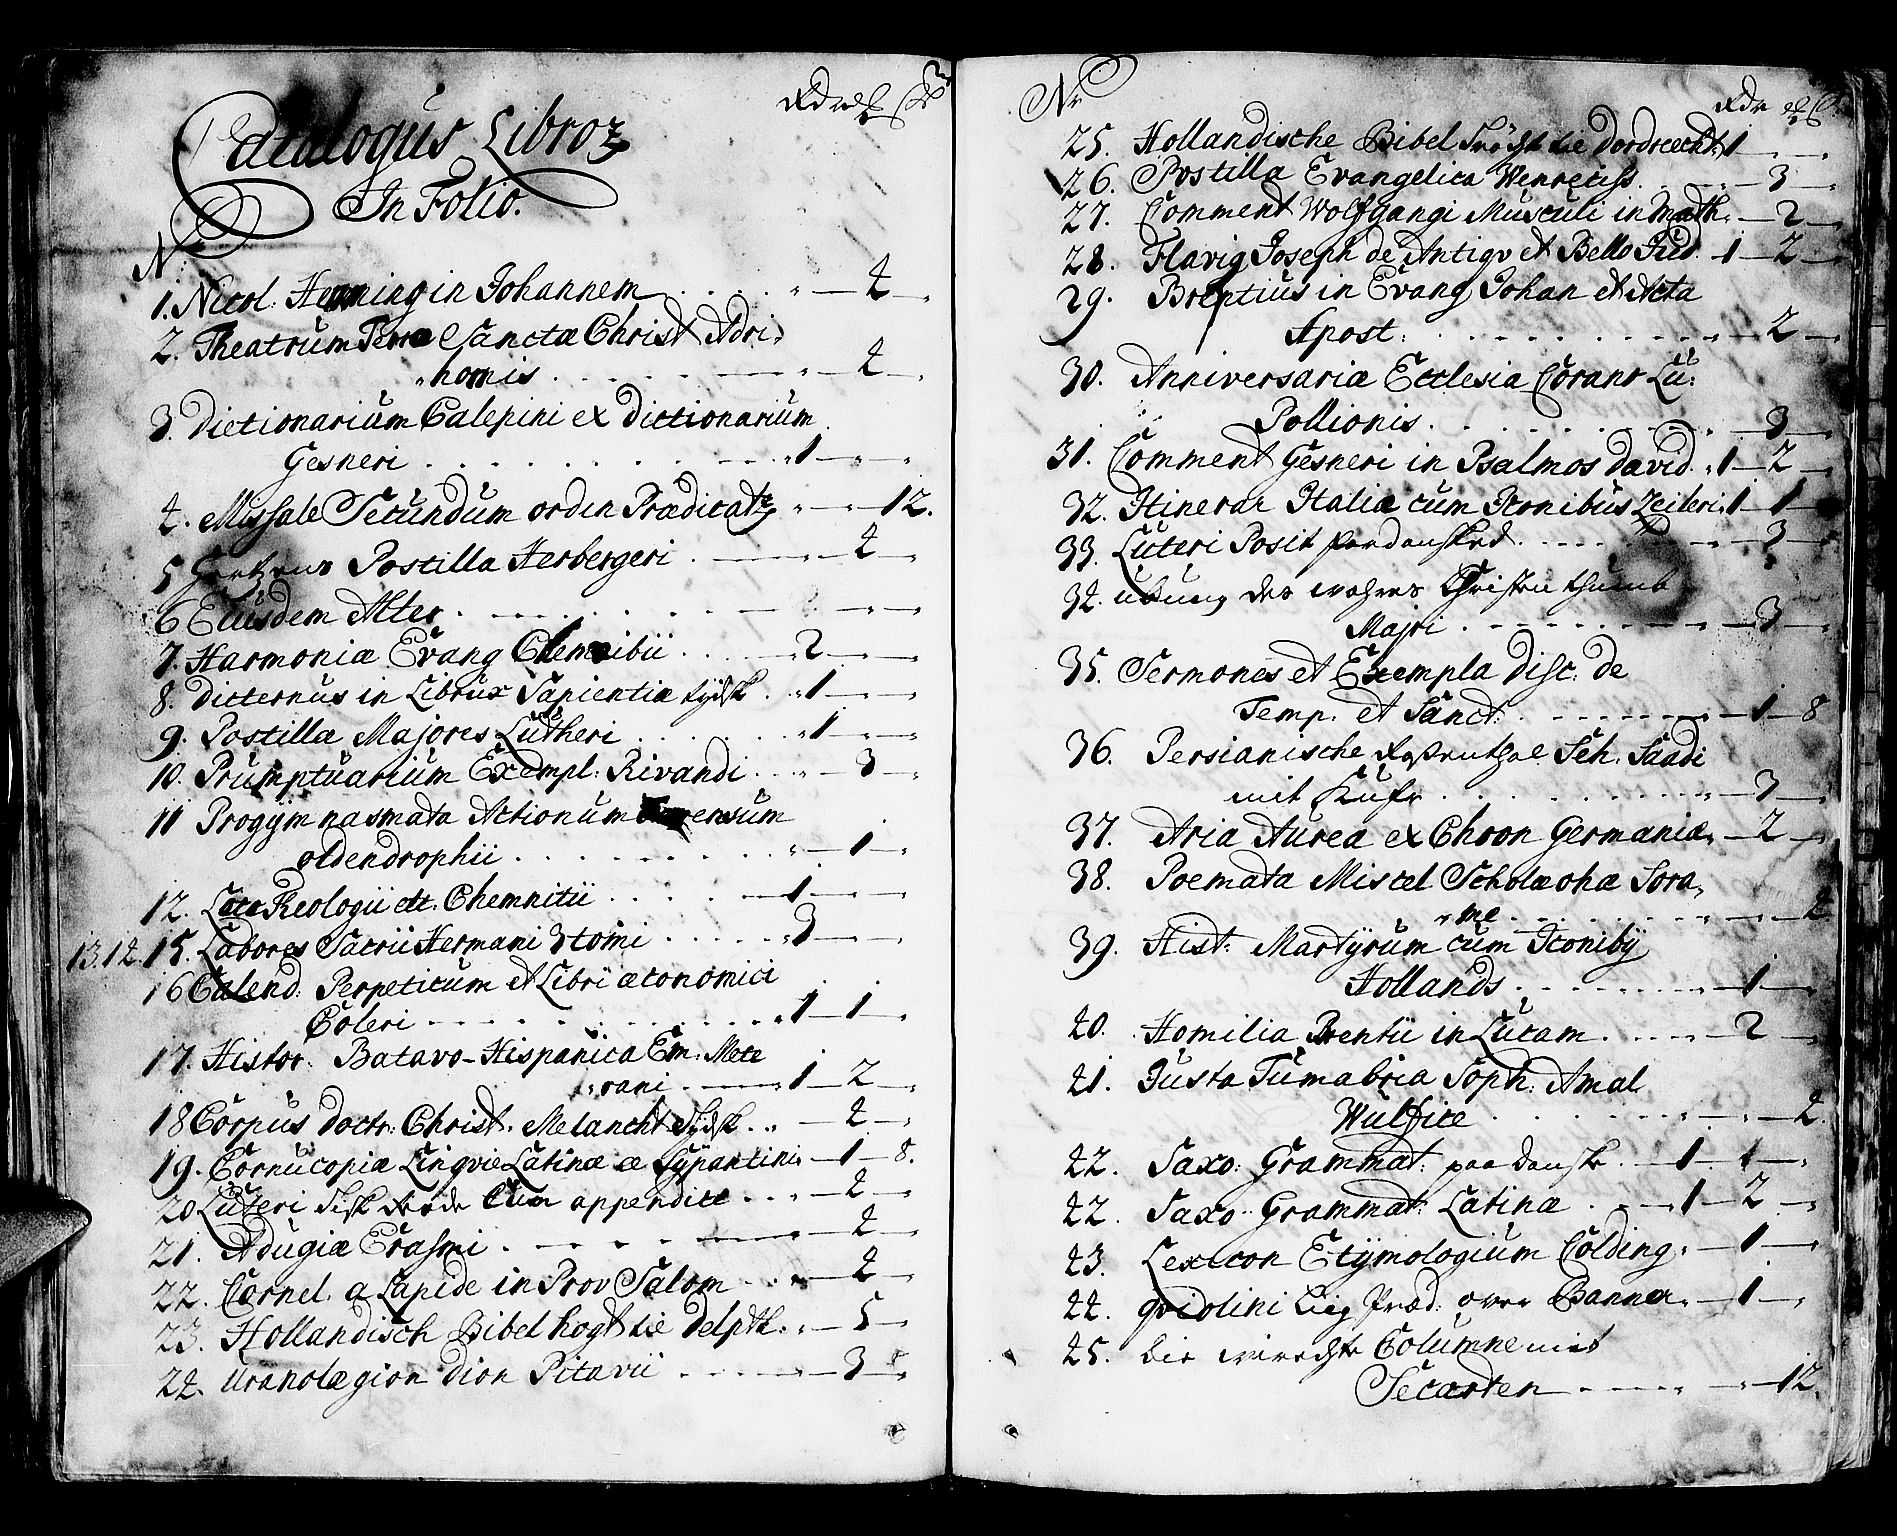 Catalogus Libroꝝ
In Folio.
Nr
1. Nicol. Hemming in Johannem - 4 -
2. Theatrum Terræ Sanctæ Christ Adri-
homis - 4 -
3. Dictionarium Calepini ex Dictionarium
Gesneri 1 - -
4. Missale Secundum orden Prædicatꝝ - - 12.
5 Postilla Herbergeri - 4 -
6 Eiusdem Alter - - -
7. Harmoniæ Evang Chemnibii 2 - -
8. Dicternus in Librux Sapientiæ tydsk 1 - -
9. Postilla Majores Lutheri 1 - -
10. Prumptuarium Exempl: Rivandi - 3 -
11 Progymnasmata Actionum
oldendrophii - 1 -
12. Loca Theologii ett. Chemnitii 1 - -
13. 14. 15. Labores Sacrii Hermani 3 tomi 3 - -
16 Calend: Perpeticum et Libri æconomici
Coleri 1 - 1 -
17. Histor: Batavo-Hispanica Em: Mete
rani 1 - 2 -
18 Corpus doctr: Christ. Melancht Tydsk - 4 -
19. Cornucopiæ Lingvie Latinæ æ Sypantini - 1 - 8.
20 Luteri Cum appendice - 4 -
21. Adugiæ Erasmi - 4 -
22. Cornel. a Lapide in Prov Salom - 4 -
23. Hollandisch Bibel hogt tie Delpth. - 5 -
24. Uranolægion Dion Pitavii - 3 -
Nr
25. Hollandische Bibel tie Dordrecht 1 - -
26. Postilla Evangelica - 3 -
27. Comment Wolfgangi Musculi in Math. - 2 -
28. Flavig Joseph de Antiqv et Bello Jud. 1 - 2 -
29. Brentius in Evang Johan et Acta
Apost: - 2 -
30. Anniversariæ Ecclesia Corant Lu:
Pollionis - 3 -
31. Comment Gesneri in Psalmos David 1 - 2 -
32. Itinerar Italiæ cum Iconibus Zeileri 1 - 1 -
33. Luteri Posit paa dansked - 3 -
34. ubung des wahres Christenthumb
Majri - 3 -
35. Sermones et Exempla Disc: de
Temp. et Sanct: - 1 - 8
36. Persianische Rosenthal Seh. Saadi
mit Kufr - 3 -
37. Aria Aurea ex Chron Germaniæ - 2 -
38. Poemata Miscel Scholæ ohæ Sora-
næ - - 4
39. Hist: Martyrum cum Iconibꝰ
Hollands - 1 -
40. Homilia Brentii in Lucam - 2
41. Justa Tumabria Soph: Amal
Wulfice - - 4.
42. Saxo: Grammat: paa Danske 1 - 1 -
42. Saxo: Grammat: Latinæ 1 - 2 -
43. Lexicon Etymologium Colding. - 1 -
44. Gvidlini Liig Præd: over Banner - 1 -
45. Die Columne mit
Secarten - - 12.